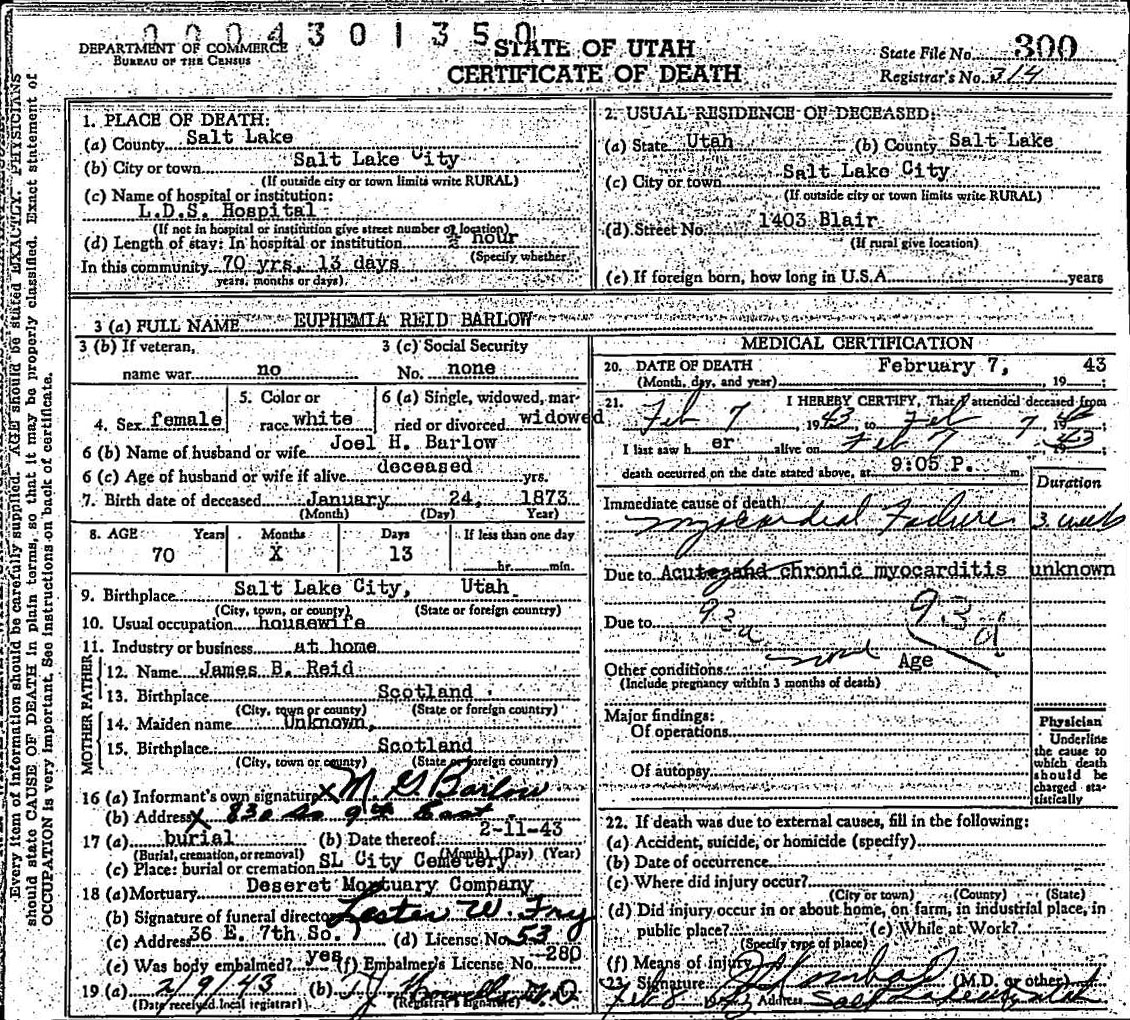 0004301350
DEPARTMENT OF COMMERCE
BUREAU OF THE CENSUS
STATE OF UTAH
CERTIFICATE OF DEATH
State File No. 300
Registrar's No. 314
Every item of information should be carefully supplied. AGE should be stated EXACTLY. PHYSICIANS
should state CAUSE OF DEATH in plain terms, so that it may be properly classified. Exact statement of
OCCUPATION is very important. See instructions on back of certificate.
1. PLACE OF DEATH:
(a) County Salt Lake
(b) City or town Salt Lake City
(If outside city or town limits write RURAL)
(c) Name of hospital or institution:
L.D.S. Hospital
(If not in hospital or institution give street number or location)
(d) Length of stay: In hospital or institution ½ hour
(Specify whether
In this community 70 yrs, 13 days
years, months or days)
2. USUAL RESIDENCE OF DECEASED:
(a) State Utah (b) County Salt Lake
(c) City or town Salt Lake City
(If outside city or town limits write RURAL)
(d) Street No. 1403 Blair
(If rural give location)
(e) If foreign born, how long in U.S.A. years
3 (a) FULL NAME EUPHEMIA REID BARLOW
3 (b) If veteran, 3 (c) Social Security
name war no No. none
4. Sex female 5. Color or race white 6 (a) Single, widowed, married or divorced widowed
6 (b) Name of husband or wife Joel H. Barlow
6 (c) Age of husband or wife if alive deceased yrs.
7. Birth date of deceased January 24, 1873
(Month) (Day) Year)
8. AGE Years Months Days If less than one day
70 X 13 hr. min.
9. Birthplace Salt Lake City, Utah
(City, town, or county) (State or foreign country)
10. Usual occupation housewife
11. Industry or business at home
FATHER
12. Name James B. Reid
13. Birthplace Scotland
(City, town or county) (State or foreign country)
MOTHER
14. Maiden name Unknown,
15. Birthplace Scotland
(City, town or county) (State or foreign country)
16 (a) Informant's own signature x M. G. Barlow
(b) Address x 830 So 9th East
17 (a) burial (b) Date thereof 2-11-43
(Burial, cremation, or removal) (Month) (Day) (Year)
(c) Place: burial or cremation SL City Cemetery
18 (a) Mortuary Deseret Mortuary Company
(b) Signature of funeral director Lester W. Fry
(c) Address 36 E. 7th So. (d) License No. 53
(e) Was body embalmed? yes (f) Embalmer's License No. 280
19 (a) 2/9/43 (b) T. J.
(Date received local registrar) (Registrar's signature)
MEDICAL CERTIFICATION
20. DATE OF DEATH February 7, 43
(Month, day, and year) , 19 ;
21. I HEREBY CERTIFY, That I attended deceased from
Feb 7 1943 to Feb 7, 1943
I last saw h er alive on Feb 7 1943
death occurred on the date stated above, at 9:05 P. m.
Duration
Immediate cause of death
Myocardial Failure 3 weeks
Due to Acute and chronic myocarditis unknown
93d 93d
Due to
Other conditions Age
(Include pregnancy within 3 months of death)
Major findings:
Of operations
Of autopsy
Physician
Underline
the cause to
which death
should be
charged sta-
tistically
22. If death was due to external causes, fill in the following:
(a) Accident, suicide, or homicide (specify)
(b) Date of occurrence
(c) Where did injury occur?
(City or town) (County) (State)
(d) Did injury occur in or about home, on farm, in industrial place, in
public place? (e) While at Work?
(Specify type of place)
(f) Means of injury
23. Signature (M.D. or other)
Feb 8 1943 Address Salt Lake City Utah